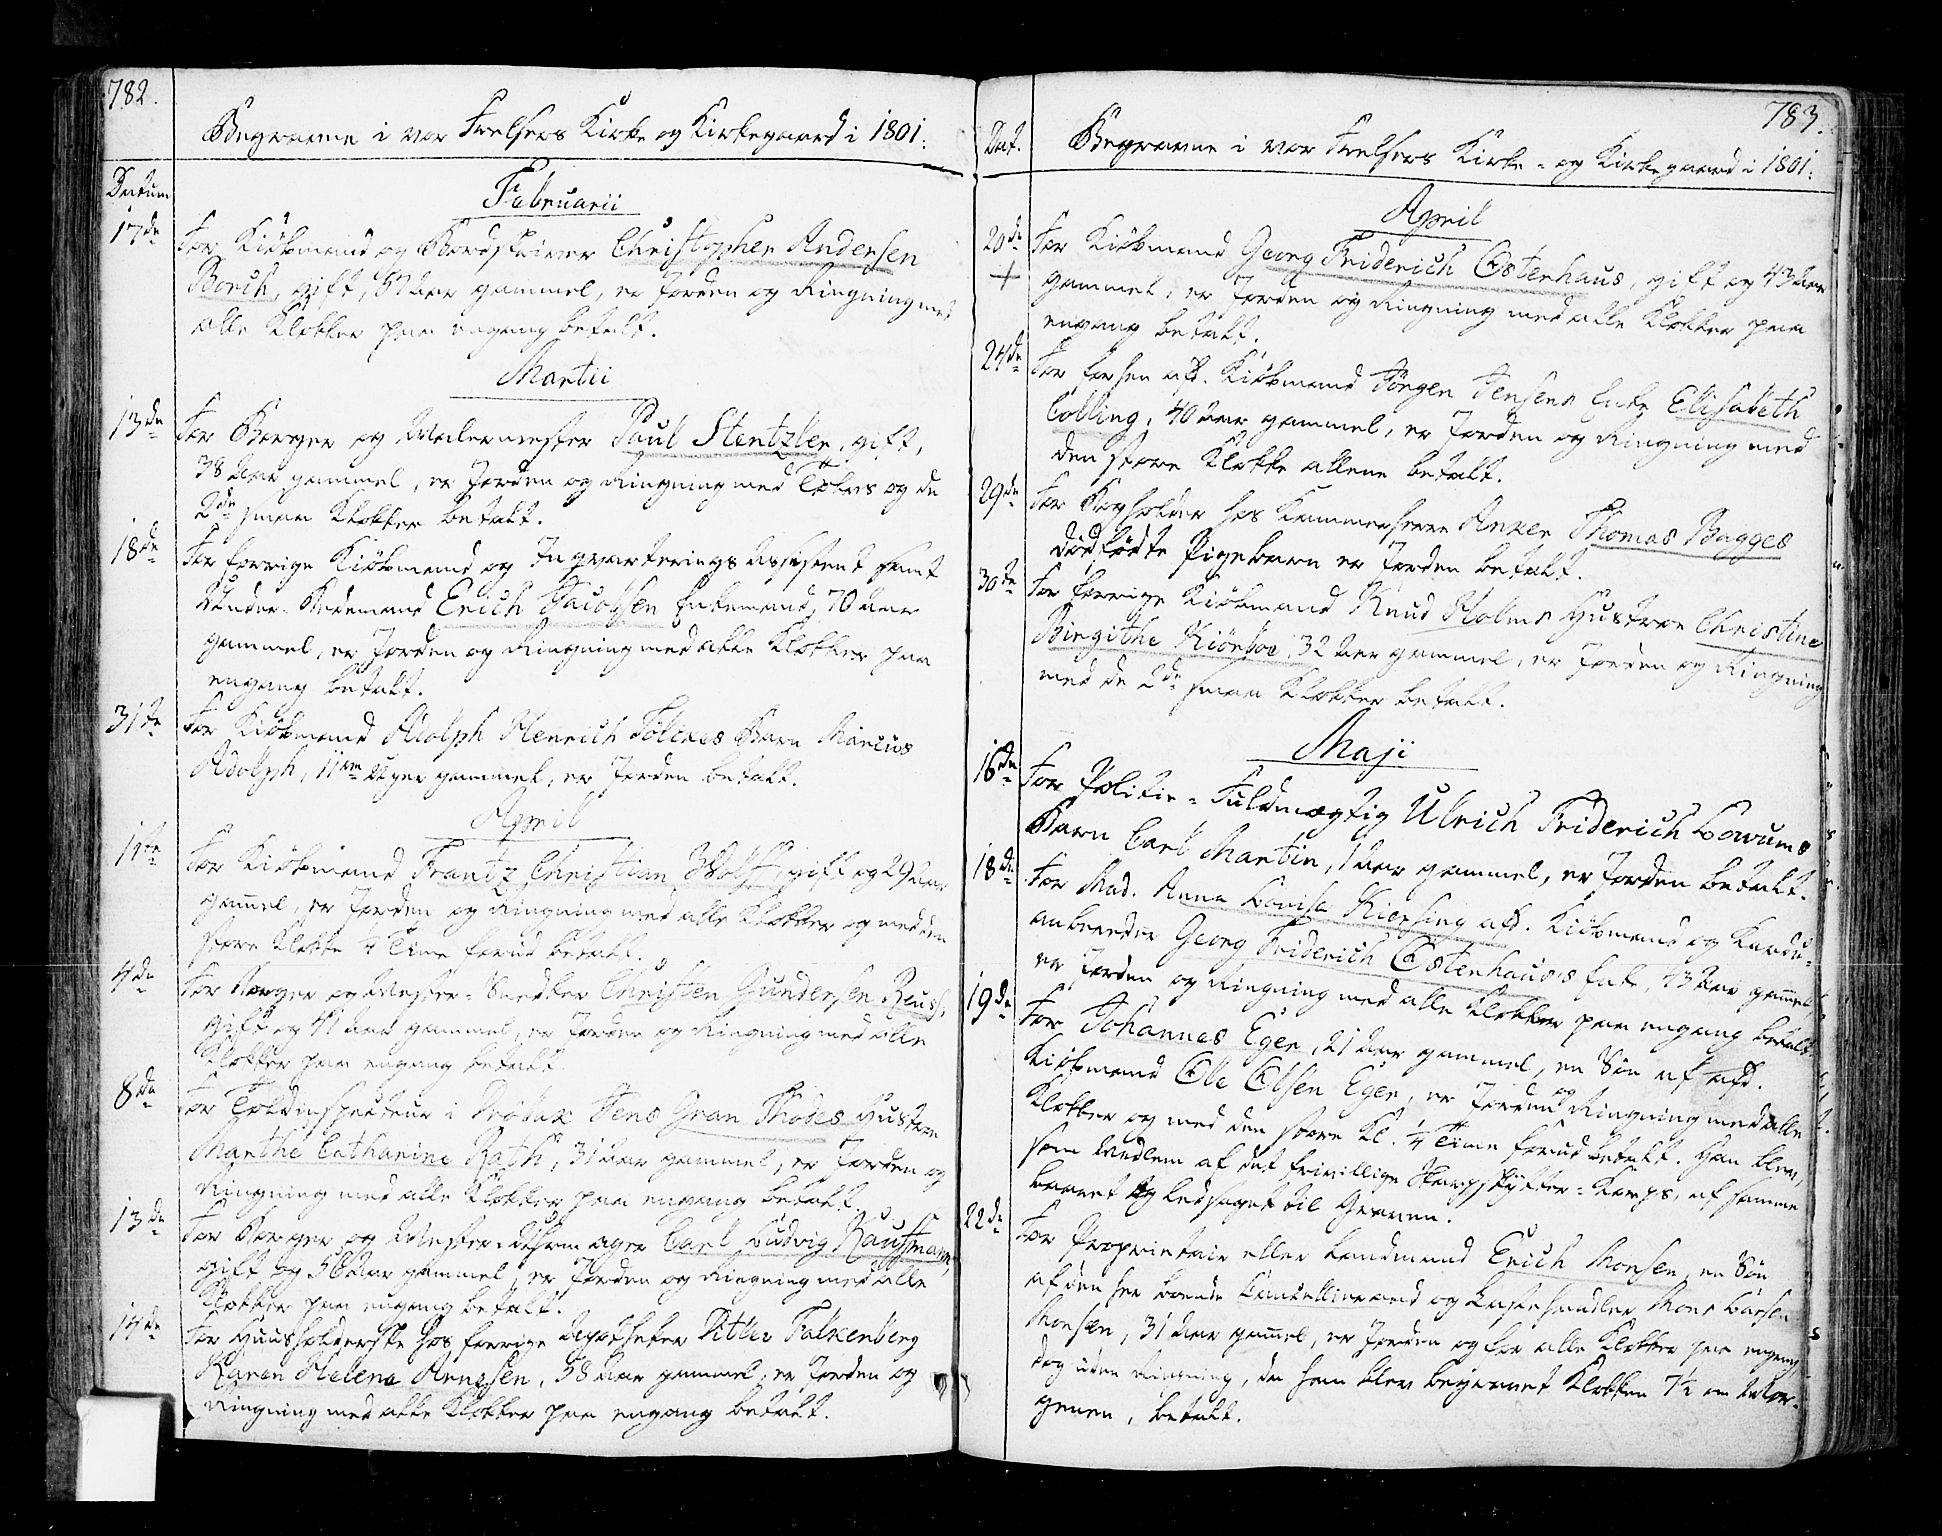 782.
Begravne i vor Frelsers Kirke og Kirkegaard i 1801.
Datum
Februarii
17de For Kiöbmand og Bordskriver Christopher Andersen
Borch, gift, 57 Aar gammel, er Jorden og Ringning med
alle Klokker paa engang betalt.
Martii
13de For Borger og Malermester Paul Stentzler, gift,
38 Aar gammel, er Jorden og Ringning med Tolvs og de
2de smaa Klokker betalt.
18de For forrige Kiöbmand og Inqvarterings Assistent samt
Under-Bedemand Erich Jacobsen Enkemand, 70 Aar
gammel, er Jorden og Ringning med alle Klokker paa
engang betalt.
31te For Kiöbmand Adolph Henrich Tölckes Barn Marcus
Adolph, 11 Uger gammel, er Jorden betalt.
April
1ste For Kiöbmand Frantz Christian Wolff, gift og 29 Aar
gammel, er Jorden og Ringning med alle Klokker og med den
store Klokke 1/4 Time forud betalt.
4de For Borger og Mester-Snedker Christen Gundersen Reuss,
gift og 41 Aar gammel, er Jorden og Ringning med alle
Klokker paa engang betalt.
8de For Toldinspecteur i Dröbak Jens Gran Thodes Hustroe
Marthe Catharine Rath, 31 Aar gammel, er Jorden og
Ringning med alle Klokker paa engang betalt.
13de For Borger og Mester-Uhrmager Carl Ludvig Kauffmann,
gift og 56 Aar gammel, er Jorden og Ringning med alle
Klokker paa engang betalt.
14de For Huusholderske hos forrige Apotheker Ditlev Falkenberg
Karen Helena Arnesen, 58 Aar gammel, er Jorden og
Ringning med alle Klokker paa engang betalt.
783.
Dat. Begravne i vor Frelsers Kirke- og Kirkegaard i 1801.
April
20de For Kiöbmand Georg Friderich Ostenhaus, gift og 43 Aar
+ gammel, er Jorden og Ringning med alle Klokker paa
engang betalt.
24de For forhen afd. Kiöbmand Jörgen Jensens Enke Elisabeth
Colling, 40 Aar gammel, er Jorden og Ringning med
den store Klokke allene betalt.
29de For Bogholder hos Kammerherre Anker Thomas Bagges
dödfödte Pigebarn er Jorden betalt.
30te For forrige Kiöbmand Knud Holms Hustroe Christine
Birgithe Kiönboe, 32 Aar gammel, er Jorden og Ringning
med de 2de smaa Klokker betalt.
Maji
16de For Politie-Fuldmægtig Ulrich Friderich Lovums
Barn Carl Martin, 1 Aar gammel, er Jorden betalt.
18de For Mad. Anna Lovisa Kiersing afd. Kiöbmand og Kardu-
anbereder Georg Friderich Ostenhaus's Enke, 43 Aar gamel,
er Jorden og Ringning med alle Klokker paa engang betalt
19de For Johannes Eger, 21 Aar gammel, en Sön af afd.
Kiöbmand Ole Olsen Eger, er Jorden og Ringning med alle
Klokker og med den store Kl. 1/4 Time forud betalt. Han blev,
som Medlem af det frivillige Skarpskytter-Korps, af samme
baaret og ledsaget til Graven.
22de For Proprietair eller Landmand Erich Monsen, en Sön
af den her boende Cancelliraad og Lastehandler Mons Larsen
Monsen, 31 Aar gamel, er Jorden og for alle Klokker paa engang,
dog uden Ringning, da han blev begravet Klokken 7 1/2 om Mor-
genen, betalt.